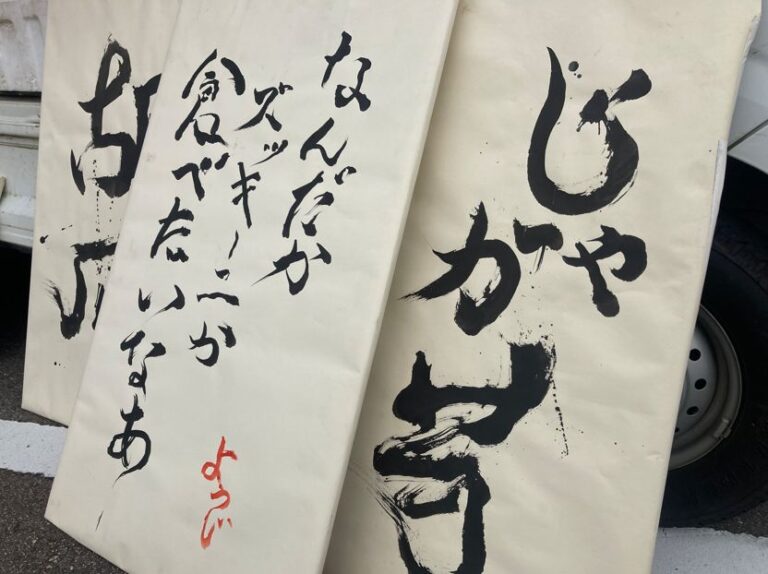 じゃが芋
なんだか
ズッキーニが
食べたいなあ
ようじ